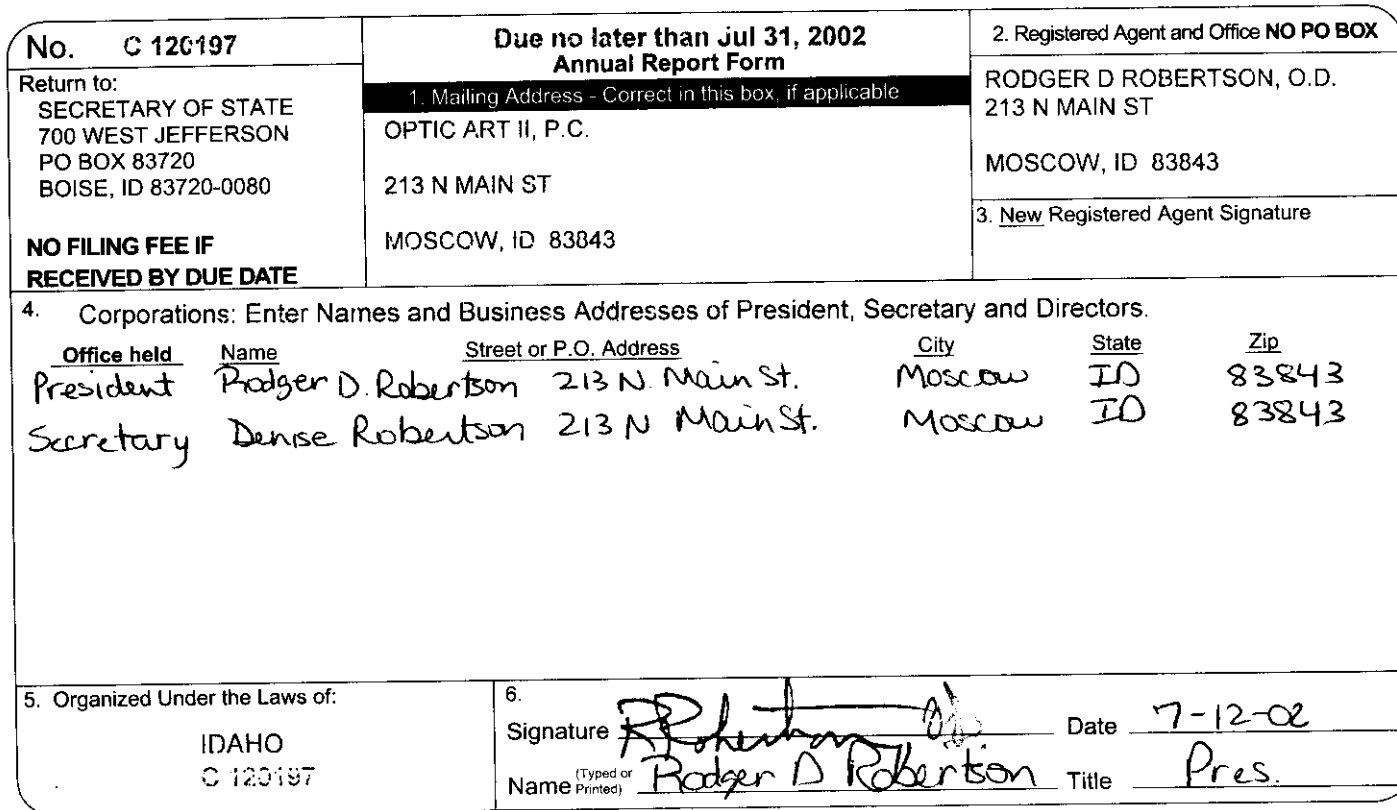 No. C 120197
Return to:
SECRETARY OF STATE
700 WEST JEFFERSON
PO BOX 83720
BOISE, ID 83720-0080
NO FILING FEE IF
RECEIVED BY DUE DATE
Due no later than Jul 31, 2002
Annual Report Form
1. Mailing Address - Correct in this box, if applicable
OPTIC ART II, P.C.
213 N MAIN ST
MOSCOW, ID 83843
2. Registered Agent and Office NO PO BOX
RODGER D ROBERTSON, O.D.
213 N MAIN ST
MOSCOW, ID 83843
3. New Registered Agent Signature
4. Corporations: Enter Names and Business Addresses of President, Secretary and Directors.
Office held Name Street or P.O. Address City State Zip
President Rodger D. Robertson 213 N. Main St. Moscow ID 83843
Secretary Denise Robertson 213 N Main St. Moscow ID 83843
5. Organized Under the Laws of:
IDAHO
C 120197
6.
Signature RRobertson Date 7-12-02
Name (Typed or Printed) Rodger D Robertson Title Pres.